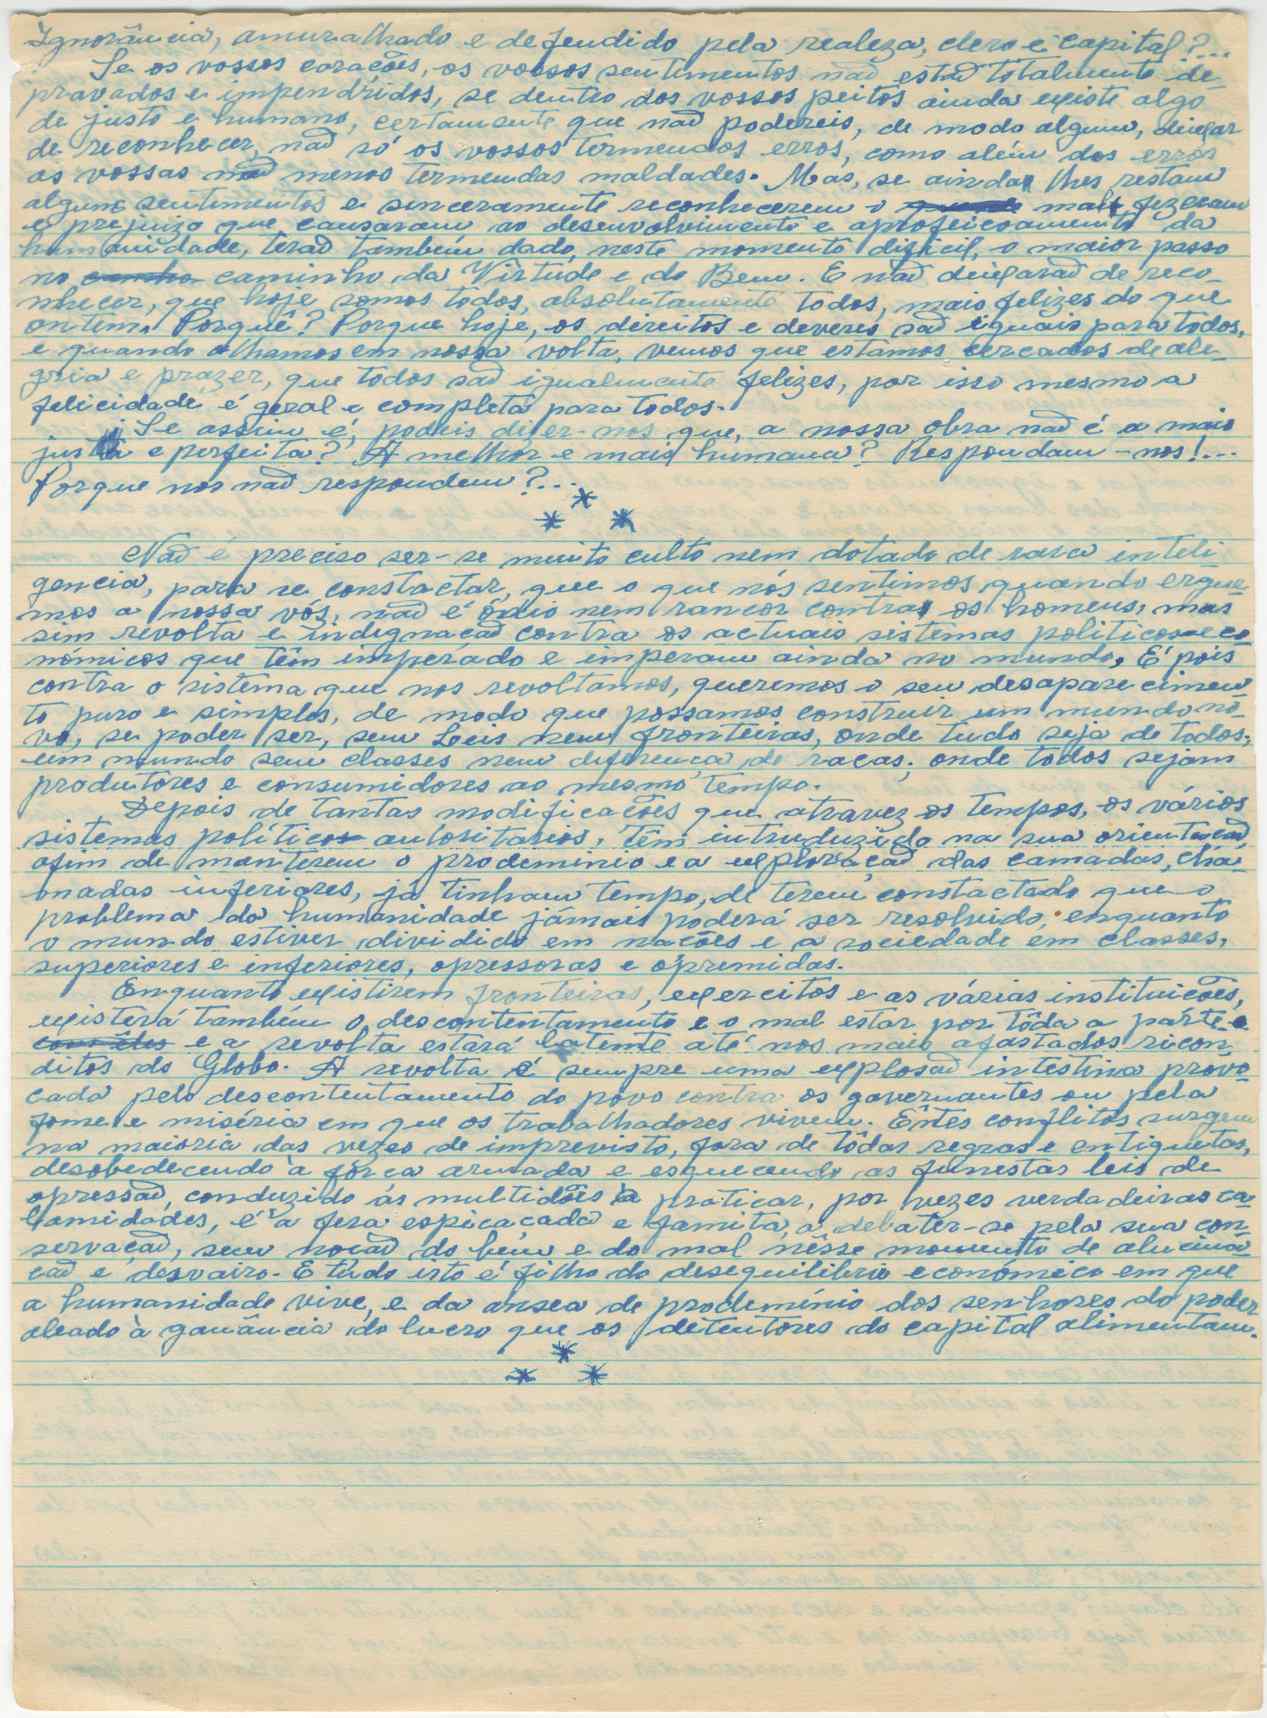 Ignorância, amuralhado e defendido pela realeza, clero e capital?...
Se os vossos corações, os vossos sentimentos não estão totalmente de-
pravados e impendridos, se dentro dos vossos peitos ainda existe algo
de justo e humano, certamente que não podereis, de modo algum, deixar
de reconhecer, não só os vossos termendos erros, como além dos erros
as vossas não menos termendas maldades. Mas, se ainda lhes restam
alguns sentimentos e sinceramente reconhecerem o mal, fizeram
e prejuizo que causaram ao desenvolvimento e aprofeiçoamento da
humanidade, terão também dado, neste momento dificil, o maior passo
no caminho da Virtude e do Bem. E não deixarão de reco-
nhecer, que hoje somos todos, absolutamente todos, mais felizes do que
ontem. Porquê? Porque hoje, os direitos e deveres são iguais para todos,
e quando olhamos em nossa volta, vemos que estamos cercados de ale-
gria e prazer, que todos são igualmente felizes, por isso mesmo a
felicidade é geral e completa para todos.
Se assim é, podeis dizer-nos que, a nossa obra não é a mais
justa e perfeita? A melhor e mais humana? Respondam-nos!...
Porque nos não respondem?...
* * *
Não é preciso ser-se muito culto nem dotado de rara inteli
gencia, para se constactar, que o que nós sentimos quando ergue-
mos a nossa vós, não é ódio nem rancor contra os homens, mas
sim revolta e indignação contra os actuais sistemas politicos-eco
nómicos que têm imperado e imperam ainda no mundo. É pois
contra o sistema que nos revoltamos, queremos o seu desaparecimen-
to puro e simples, de modo que possamos construir um mundo no-
vo, se poder ser, sem Leis nem fronteiras, onde tudo seja de todos;
um mundo sem classes nem diferença de raças; onde todos sejam
produtores e consumidores ao mesmo tempo.
Depois de tantas modificações que atravez os tempos, os vários
sistemas políticos autoritarios, têm introduzido na sua orientação
afim de manterem o prodeminio e a exploração das camadas, cha-
madas inferiores, já tinham tempo, de terem constactado que o
problema da humanidade jámais poderá ser resolvido, enquanto
o mundo estiver dividido em nações e a sociedade em classes,
superiores e inferiores, opressoras e oprimidas.
Enquanto existirem fronteiras, exercitos e as várias instituições,
existirá também o descontentamento e o mal estar por tôda a parte
e a revolta estará latente até nos mais afastados recon
ditos do Globo. A revolta é sempre uma explosão intestina provo-
cada pelo descontentamento do povo contra os governantes ou pela
fome e miséria em que os trabalhadores vivem. Êstes conflitos surgem
na maioria das vezes de imprevisto, fora de tôdas regras e entiquetas,
desobedecendo à fôrça armada e esquecendo as funestas leis de
opressão, conduzido ás multidões a praticar, por vezes verdadeiras ca-
lamidades, é a fera espicaçada e famita, a debater-se pela sua con-
servação, sem noção do bem e do mal nêsse momento de alucina-
ção e desvairo. E tudo isto é filho do desequilibrio económico em que
a humanidade vive, e da ansea de prodemínio dos senhores do poder
aleado à ganância do lucro que os detentores do capital alimentam.
* * *